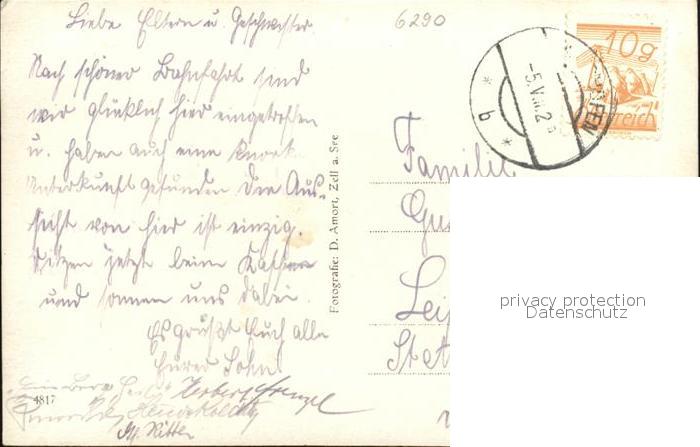 Liebe Eltern u. Geschwister.
Nach schöner Bahnfahrt sind
wir glücklich hier eingetroffen
u. haben auch eine
Unterkunft gefunden Die Aus-
sicht von hier ist einzig.
Sitzen jetzt beim Kaffee
und sonnen uns dabei.
Es grüßt Euch alle
Euer Sohn
Herbert
Ritter
4817
Fotografie: D. Amort, Zell a. See
6290
10g
-5.V
b
Familie
Lei
privacy protection
Datenschutz